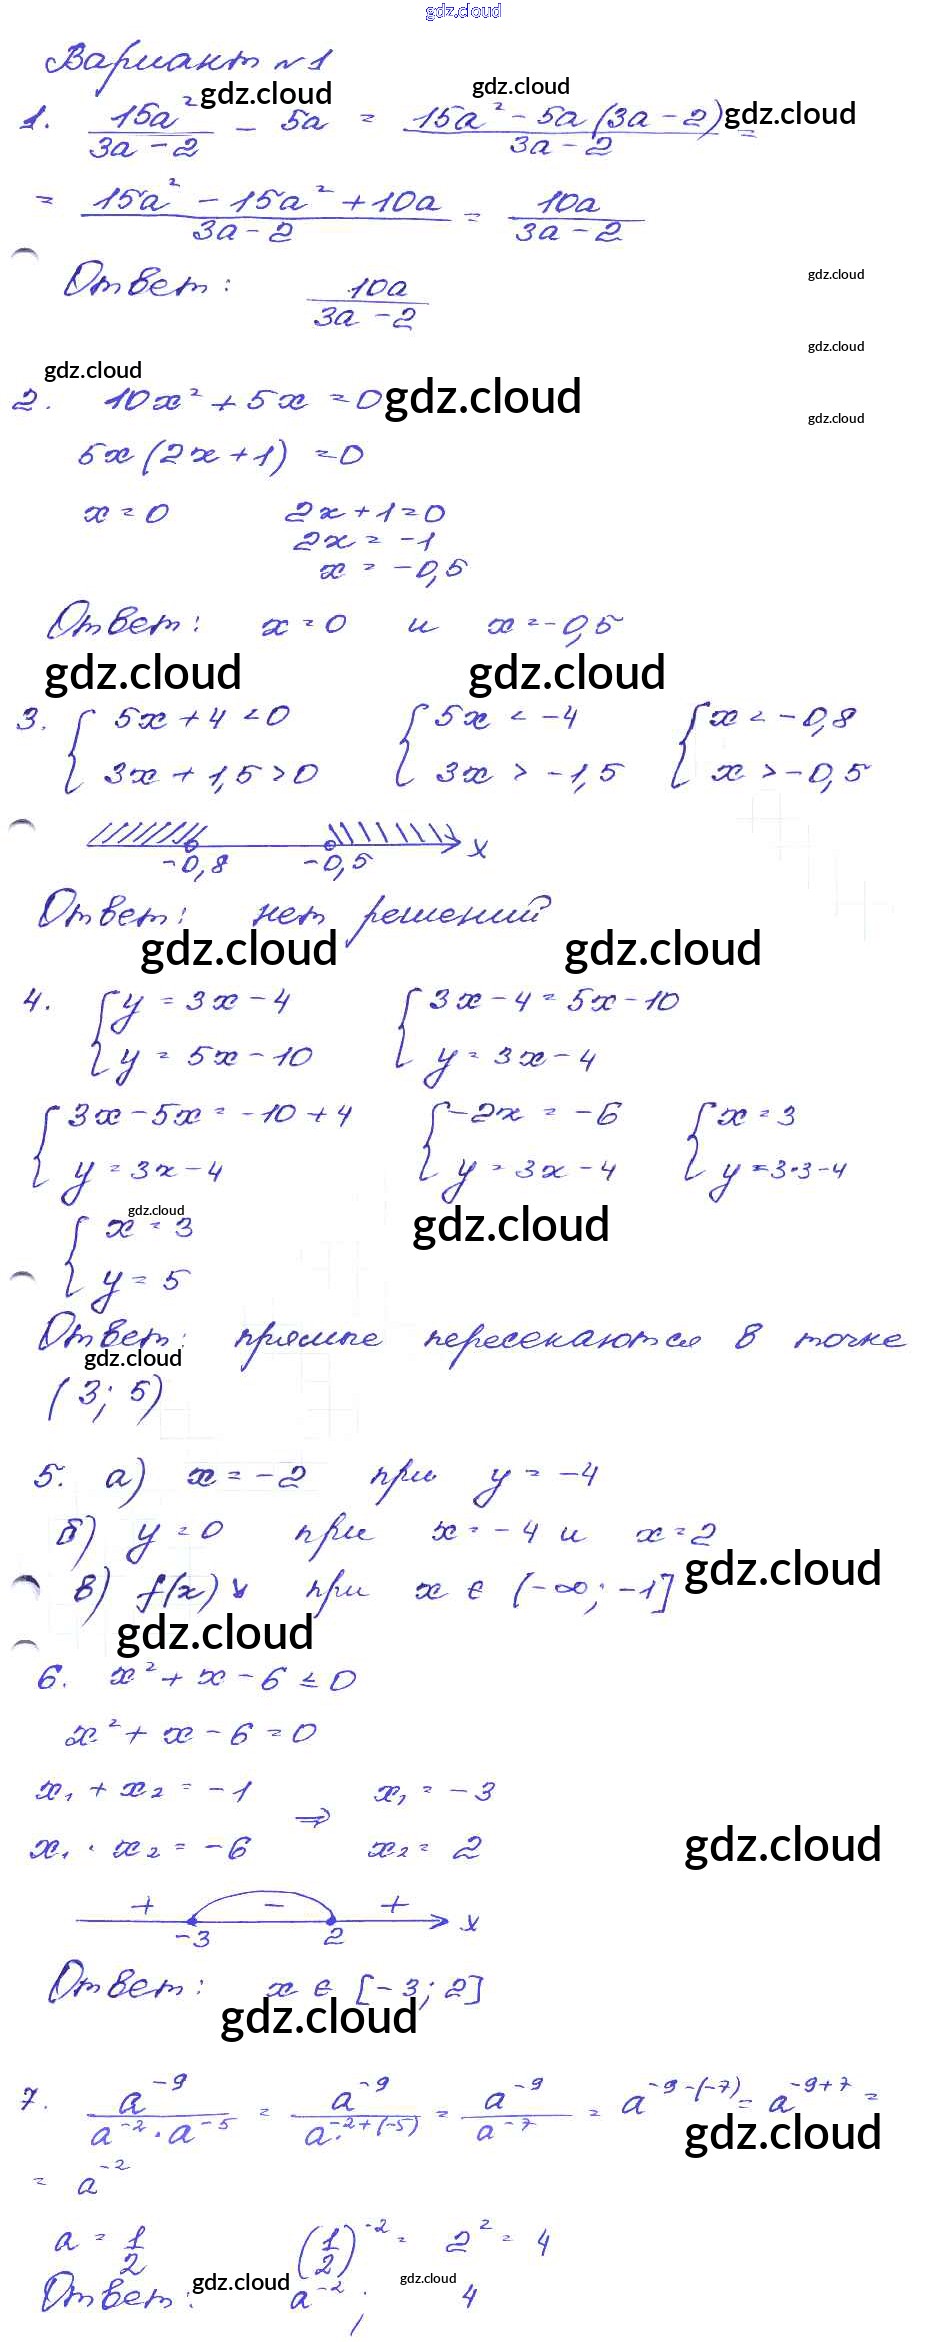 gdz.cloud
Вариант №1
1. 15a²/(3a-2) - 5a = (15a² - 5a(3a-2))/(3a-2) =
gdz.cloud gdz.cloud gdz.cloud
= (15a² - 15a² + 10a)/(3a-2) = 10a/(3a-2)
Ответ: 10a/(3a-2)
gdz.cloud
gdz.cloud
gdz.cloud
2. 10x² + 5x = 0
gdz.cloud
gdz.cloud
5x(2x+1) = 0
x = 0 2x+1=0
2x = -1
x = -0,5
Ответ: x=0 и x=-0,5
gdz.cloud gdz.cloud
3. { 5x+4<0 { 5x < -4 { x < -0,8
3x+1,5>0 3x > -1,5 x > -0,5
x
-0,8 -0,5
Ответ: нет решений
gdz.cloud gdz.cloud
4. { y = 3x-4 { 3x-4=5x-10
y = 5x-10 y = 3x-4
{ 3x-5x=-10+4 { -2x = -6 { x = 3
y = 3x-4 y = 3x-4 y = 3·3-4
gdz.cloud gdz.cloud
{ x = 3
y = 5
Ответ: прямые пересекаются в точке
gdz.cloud
(3; 5)
5. а) x = -2 при y = -4
б) y = 0 при x = -4 и x = 2
gdz.cloud
в) f(x) ↘ при x ∈ (-∞; -1]
gdz.cloud
6. x² + x - 6 ≤ 0
x² + x - 6 = 0
x₁ + x₂ = -1 ⇒ x₁ = -3
x₁ · x₂ = -6 x₂ = 2
gdz.cloud
+ - + x
-3 2
Ответ: x ∈ [-3; 2]
gdz.cloud
7. a⁻⁹/(a⁻²·a⁻⁵) = a⁻⁹/a⁻²⁺⁽⁻⁵⁾ = a⁻⁹/a⁻⁷ = a⁻⁹⁻⁽⁻⁷⁾ = a⁻⁹⁺⁷ =
gdz.cloud
= a⁻²
a = 1/2 (1/2)⁻² = 2² = 4
gdz.cloud gdz.cloud
Ответ: a⁻²; 4